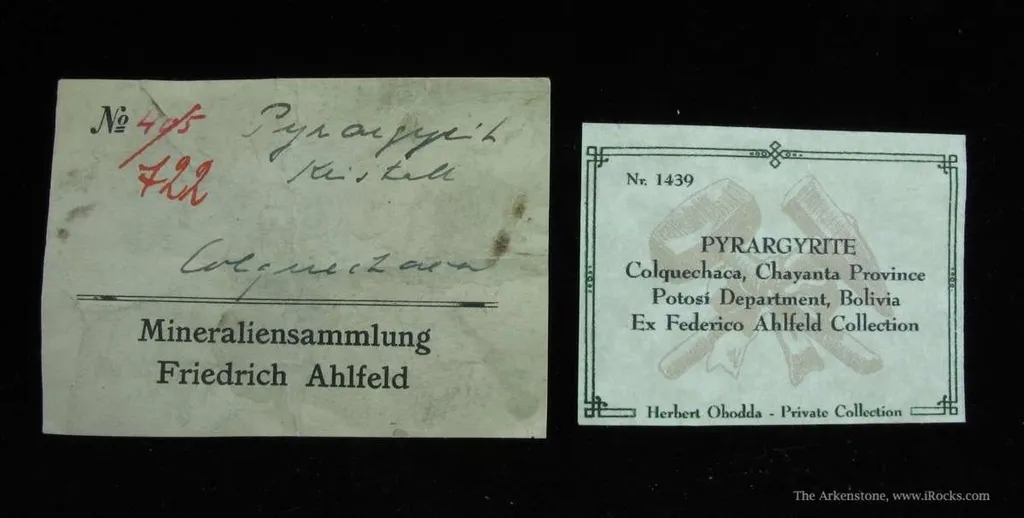 № 405 Pyrargyrit
722 Kristall
Colquechaca
Mineraliensammlung
Friedrich Ahlfeld
Nr. 1439
PYRARGYRITE
Colquechaca, Chayanta Province
Potosí Department, Bolivia
Ex Federico Ahlfeld Collection
Herbert Obodda - Private Collection
The Arkenstone, www.iRocks.com